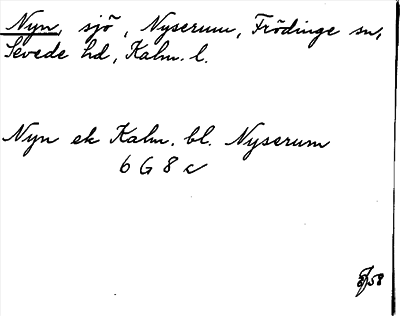 Nyn, sjö, Nyserum, Frödinge sn,
Sevede hd, Kalm. l.
Nyn ek Kalm. bl. Nyserum
6 G 8 c
58